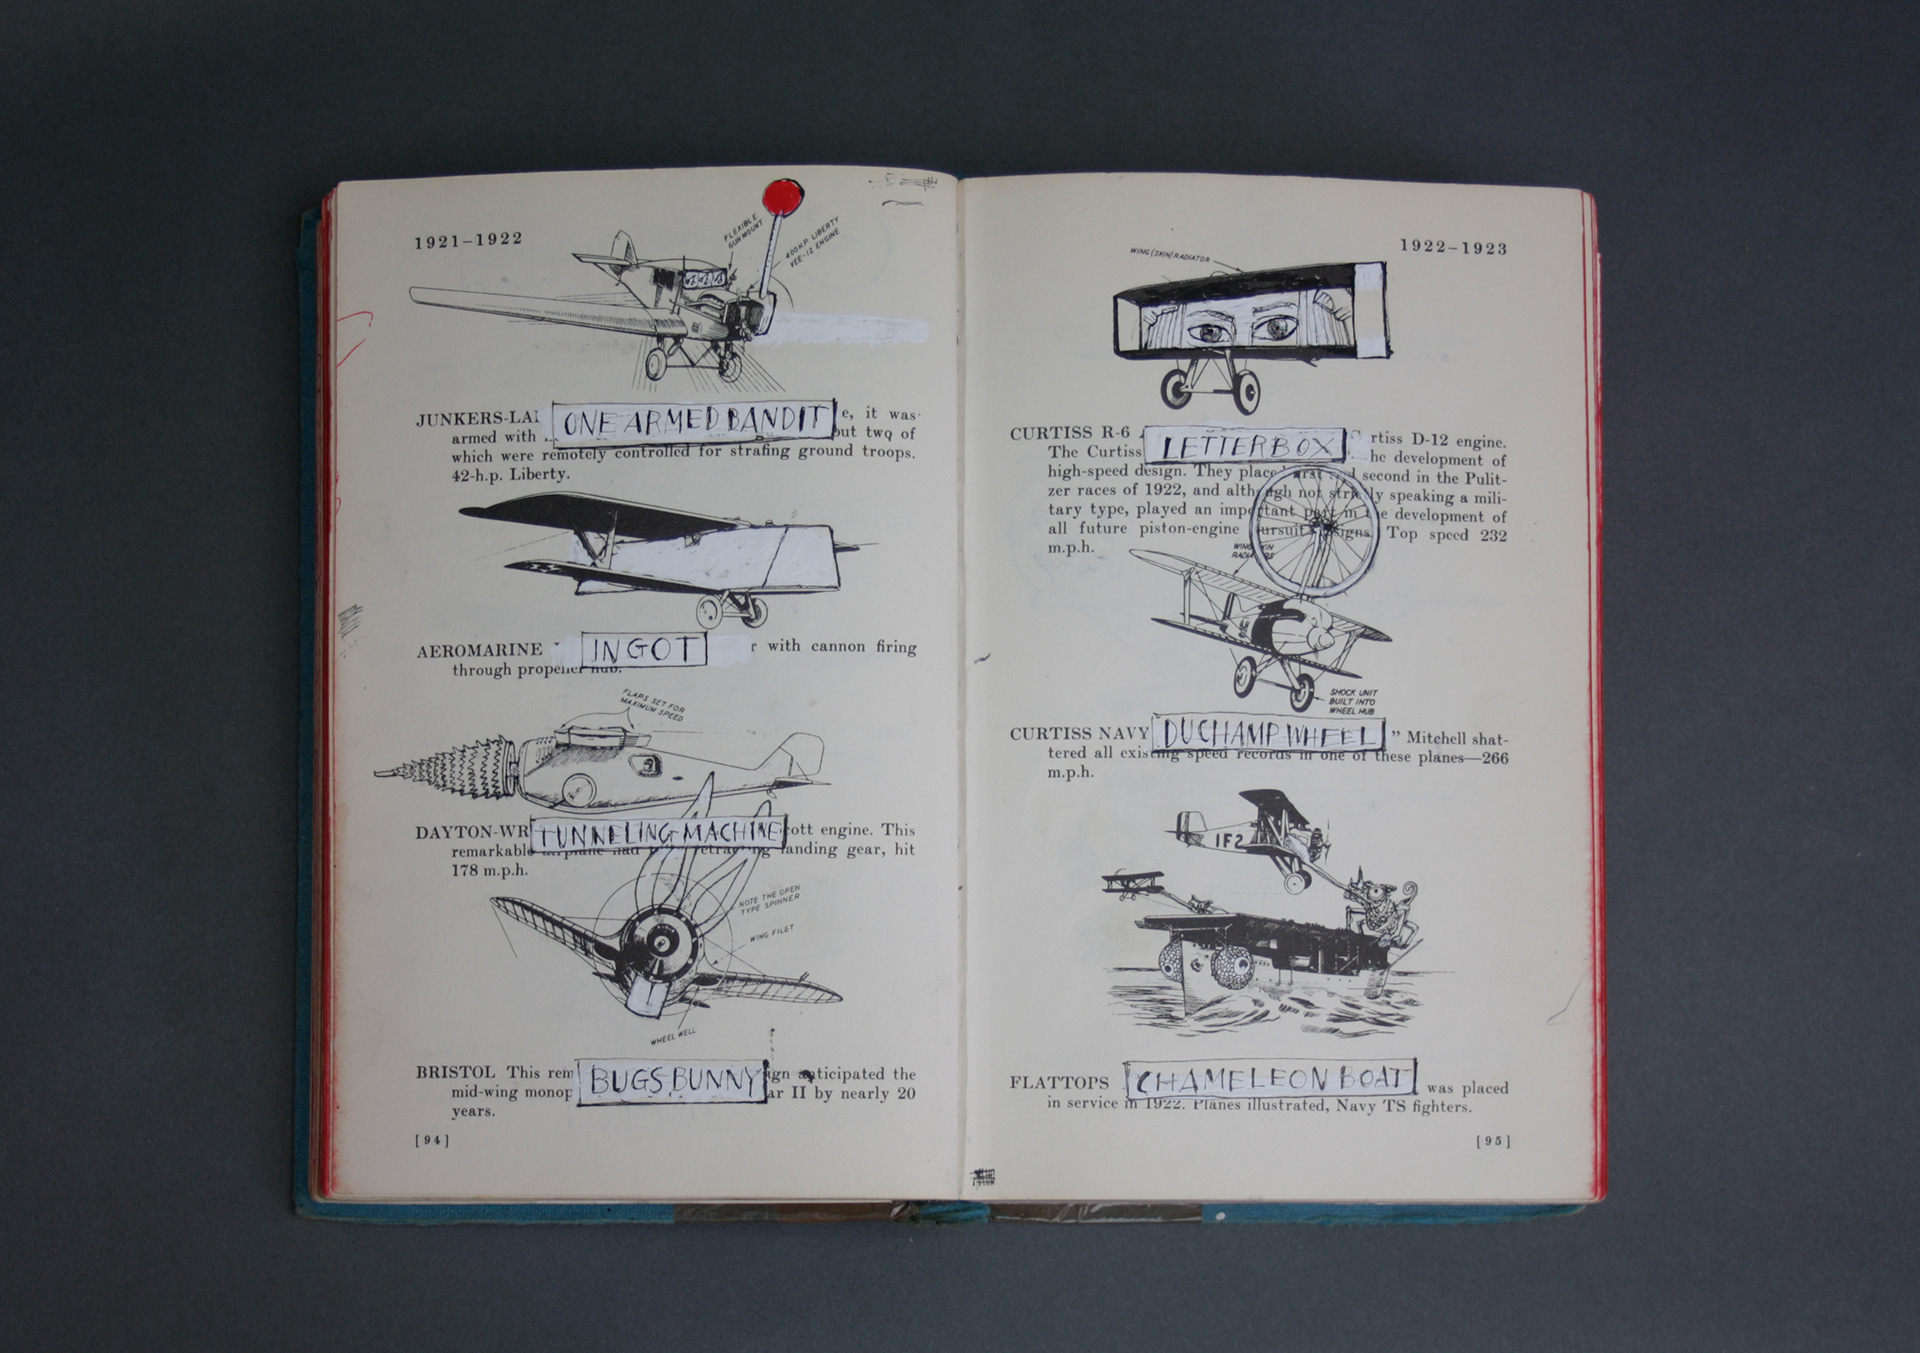 1921–1922
FLEXIBLE
GUN MOUNT
400 H.P. LIBERTY
VEE-12 ENGINE
JUNKERS-LA ONE ARMED BANDIT e, it was
armed with but two of
which were remotely controlled for strafing ground troops.
42-h.p. Liberty.
AEROMARINE INGOT r with cannon firing
through propeller hub.
FLAPS SET FOR
MAXIMUM SPEED
DAYTON-WR TUNNELING MACHINE cott engine. This
remarkable airplane had retracting landing gear, hit
178 m.p.h.
NOTE THE OPEN
TYPE SPINNER
WING FILET
WHEEL WELL
BRISTOL This rem BUGS BUNNY ign anticipated the
mid-wing monop ar II by nearly 20
years.
[94]
1922–1923
WING (SKIN) RADIATOR
CURTISS R-6 LETTERBOX rtiss D-12 engine.
The Curtiss he development of
high-speed design. They placed first and second in the Pulit-
zer races of 1922, and although not strictly speaking a mili-
tary type, played an important part in the development of
all future piston-engine pursuit designs. Top speed 232
m.p.h.
WING SKIN
RADIATORS
SHOCK UNIT
BUILT INTO
WHEEL HUB
CURTISS NAVY DUCHAMP WHEEL ” Mitchell shat-
tered all existing speed records in one of these planes—266
m.p.h.
1F2
FLATTOPS CHAMELEON BOAT was placed
in service in 1922. Planes illustrated, Navy TS fighters.
[95]